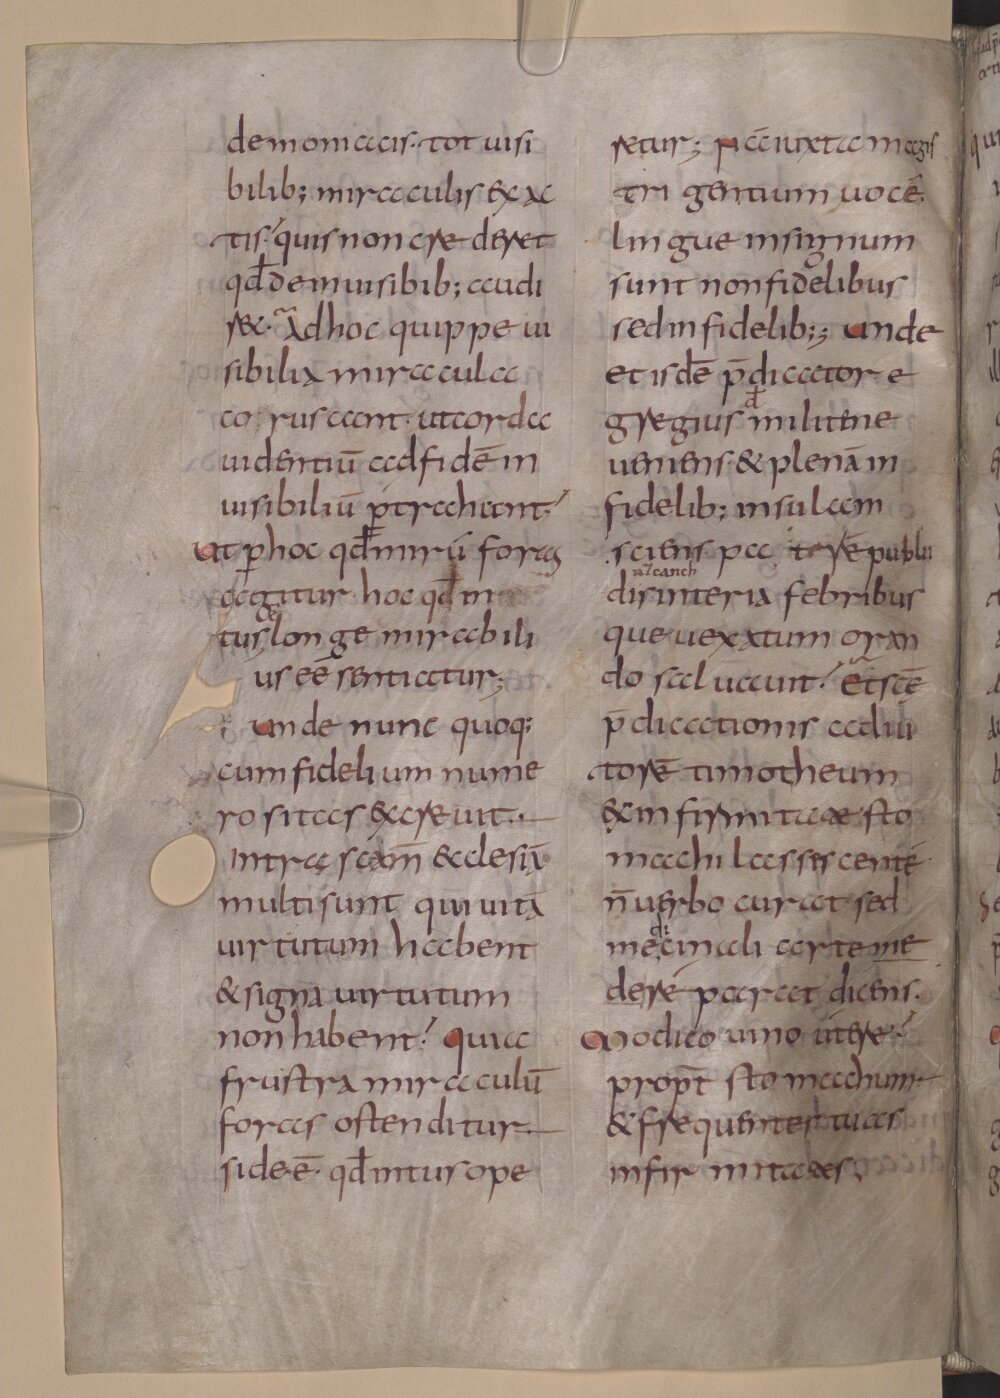 demoniacis. tot uisi
bilib; miraculis exac
tis? quis non crederet
qđ de inuisibib; audi
ret. Ad hoc quippe ui
sibilia miracula
coruscant. ut corda
uidentiū ad fidē in
uisibiliū ꝑtrachant?
Ut ꝑ hoc qđ mirū foras
agitur. hoc qđ in
tus longe mirabili
us eē sentiatur;
Unde nunc quoq;
cum fidelium nume
rositas excreuit.
Intra scām ecclesiā
multi sunt qui uitā
uirtutum habent
& signa uirtutum
non habent? Quia
frustra miraculū
foras ostenditur
si deē. qđ intus ope
retur; sicā iuxta magis
tri gentium uocē.
linguę in signum
sunt non fidelibus
sed infidelib;; Unde
et isdē p̄dicator e
gregius đ militene
ueniens & plenā in
fidelib; insulam
sciens pa trē publii
disinteria febribus
que uexatum oran
do saluauit? Et scē
p̄dicationis adiu
torē timotheum
ex infirmitate sto
machi lassiscentē
n̄ uerbo curat sed
medicinali arte me
dere parat dicens.
Modico uino utere?
propt̄ stomachum
& frequentes tuas
infirmitates;